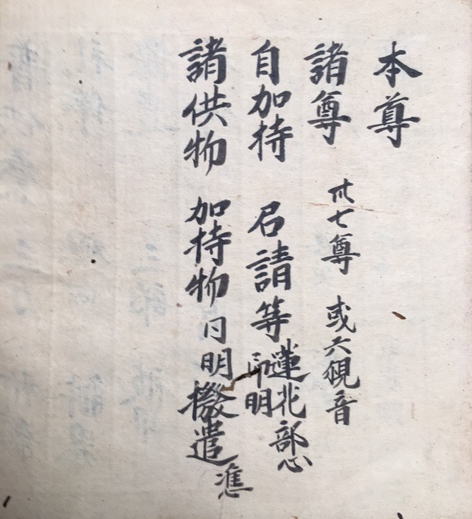 本尊
諸尊 卅七尊 或六観音
自加持 召請等 蓮花部心 印明
諸供物 加持物 同明撥遣